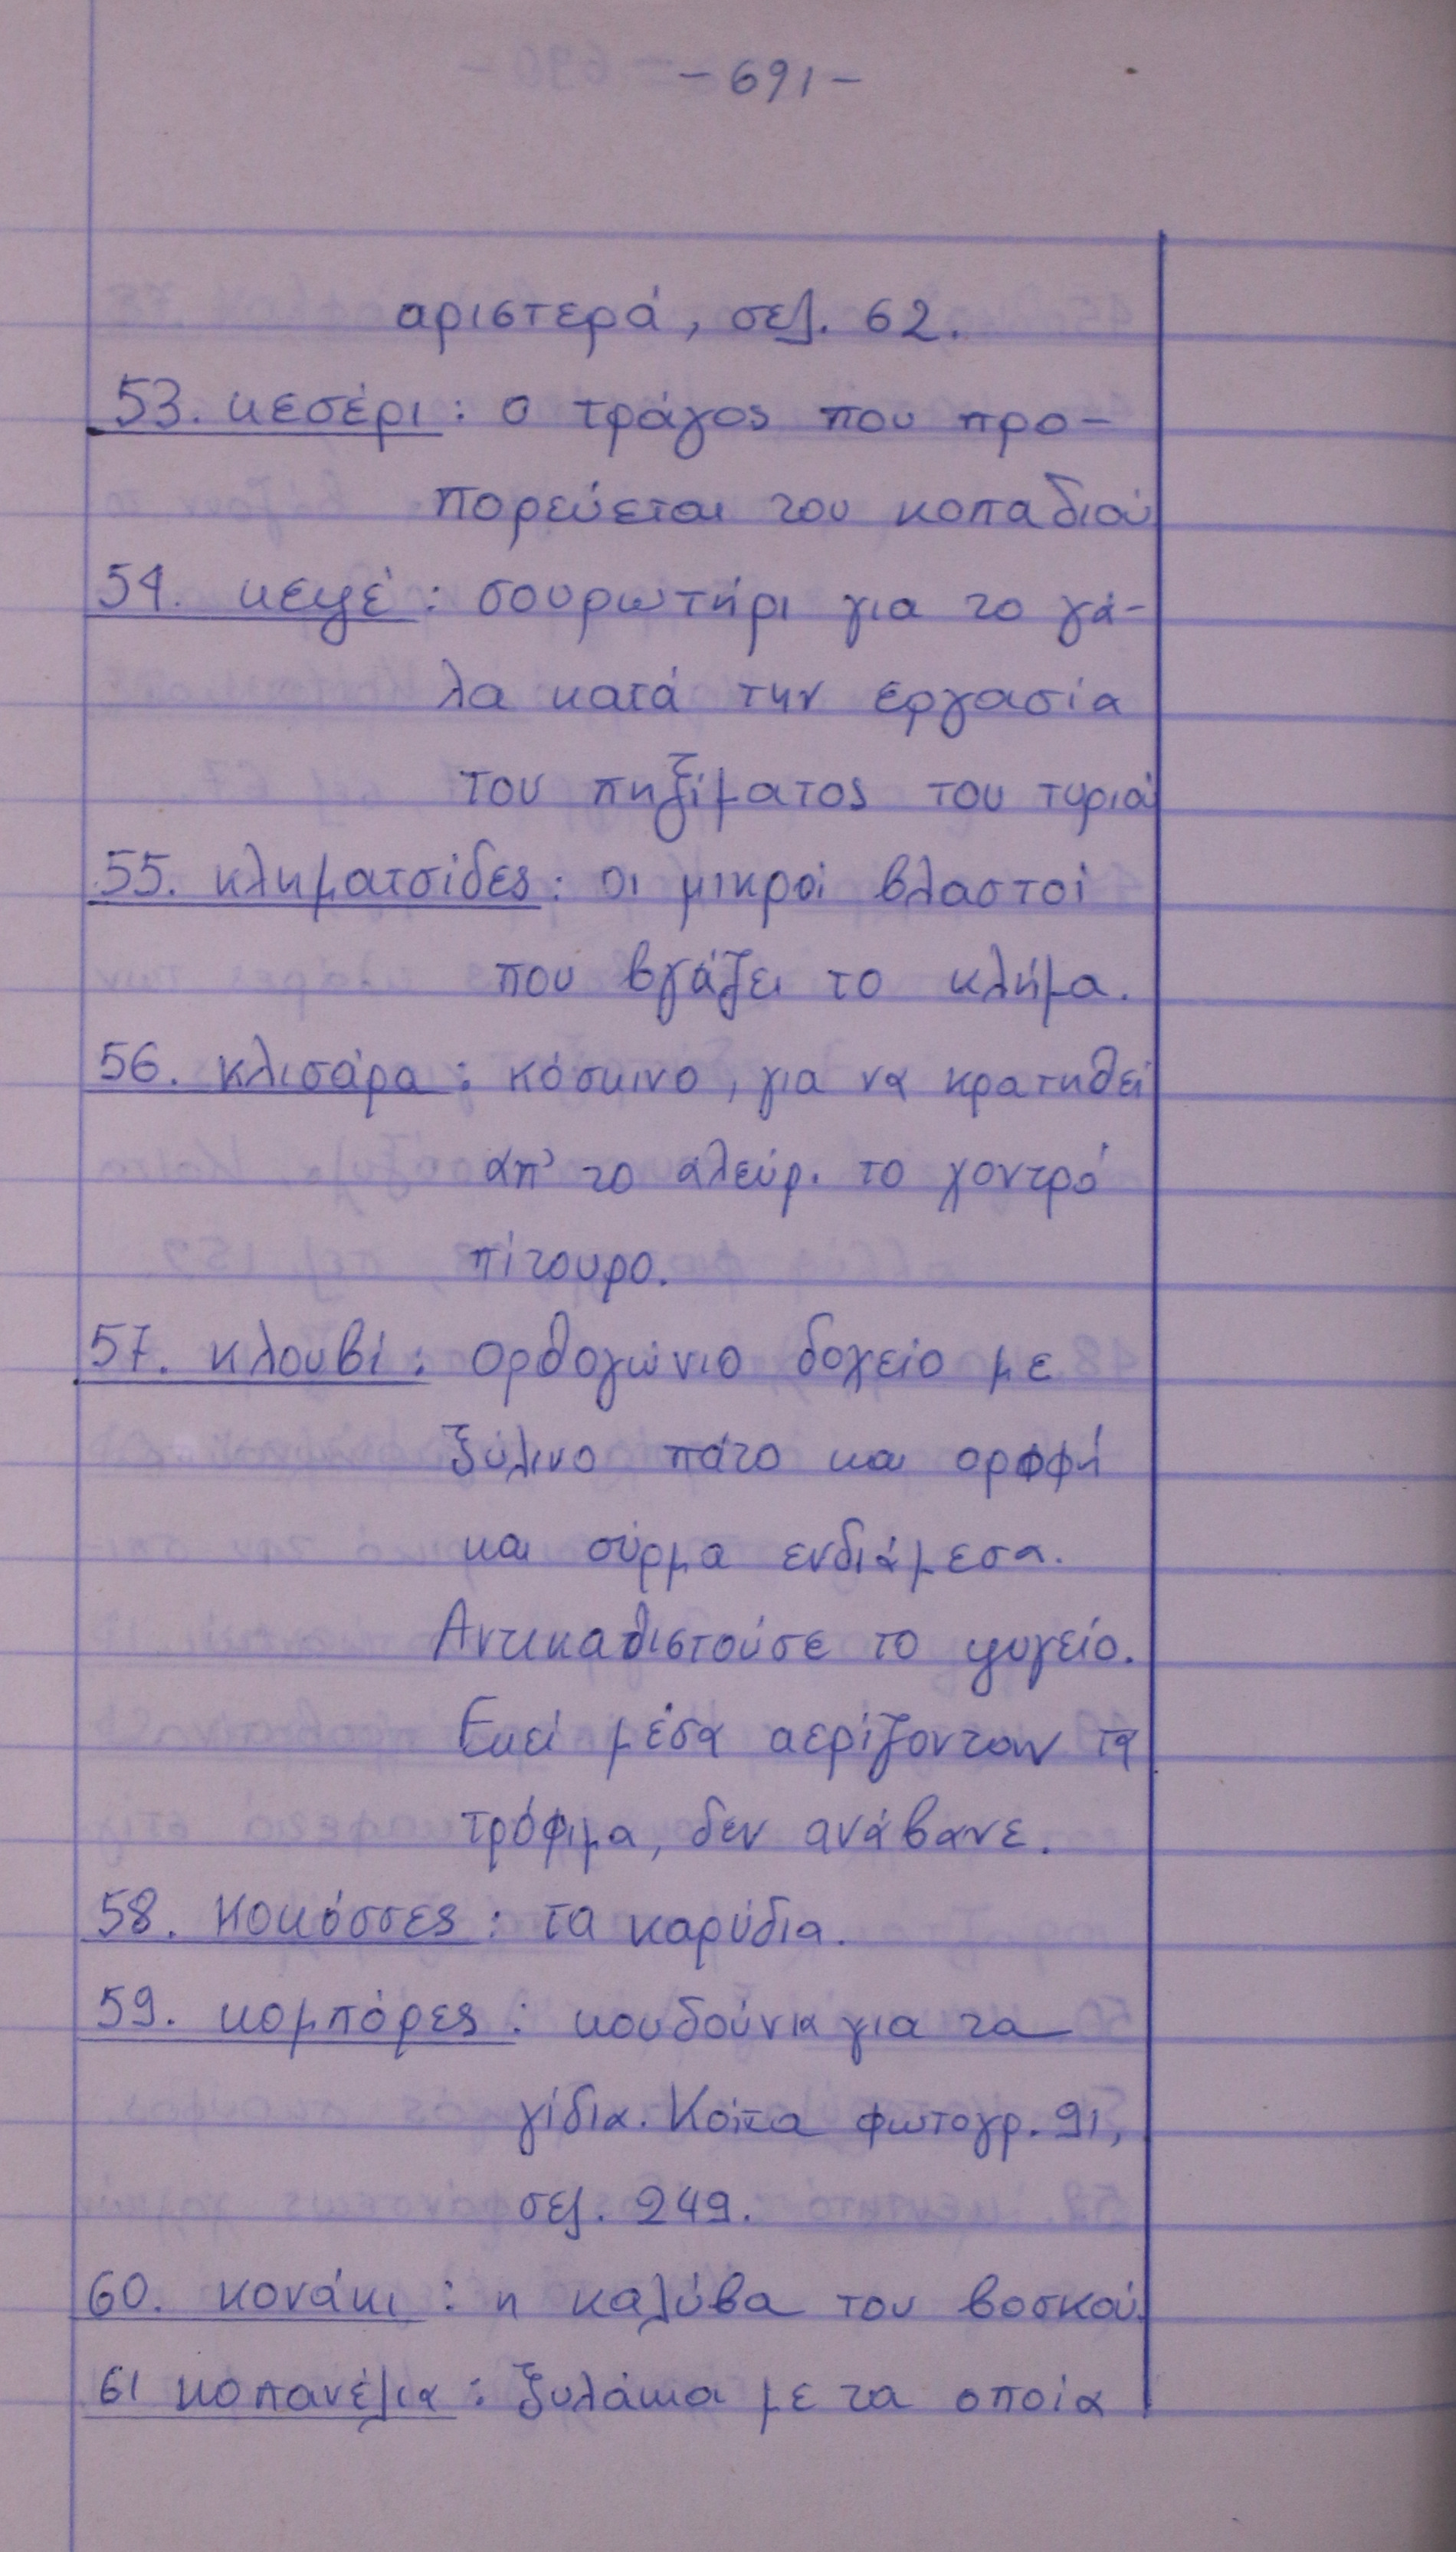 - 691 -
αριστερά, σελ. 62.
53. κεσέρι : ο τράγος που προ-
πορεύεται του κοπαδιού
54. κεψέ : σουρωτήρι για το γά-
λα κατά την εργασία
του πηξίματος του τυριού
55. κληματσίδες : οι μικροί βλαστοί
που βγάζει το κλήμα.
56. κλισάρα : κόσκινο, για να κρατηθεί
απ' το αλεύρ. το χοντρό
πίτουρο.
57. κλουβί : ορθογώνιο δοχείο με
ξύλινο πάτο και οροφή
και σύρμα ενδιάμεσα.
Αντικαθιστούσε το ψυγείο.
Εκεί μέσα αερίζονταν τα
τρόφιμα, δεν ανάβανε.
58. κοκόσσες : τα καρύδια.
59. κομπόρες : κουδούνια για τα
γίδια. Κοίτα φωτογρ. 91,
σελ. 249.
60. κονάκι : η καλύβα του βοσκού.
61 κοπανέλια : ξυλάκια με τα οποία